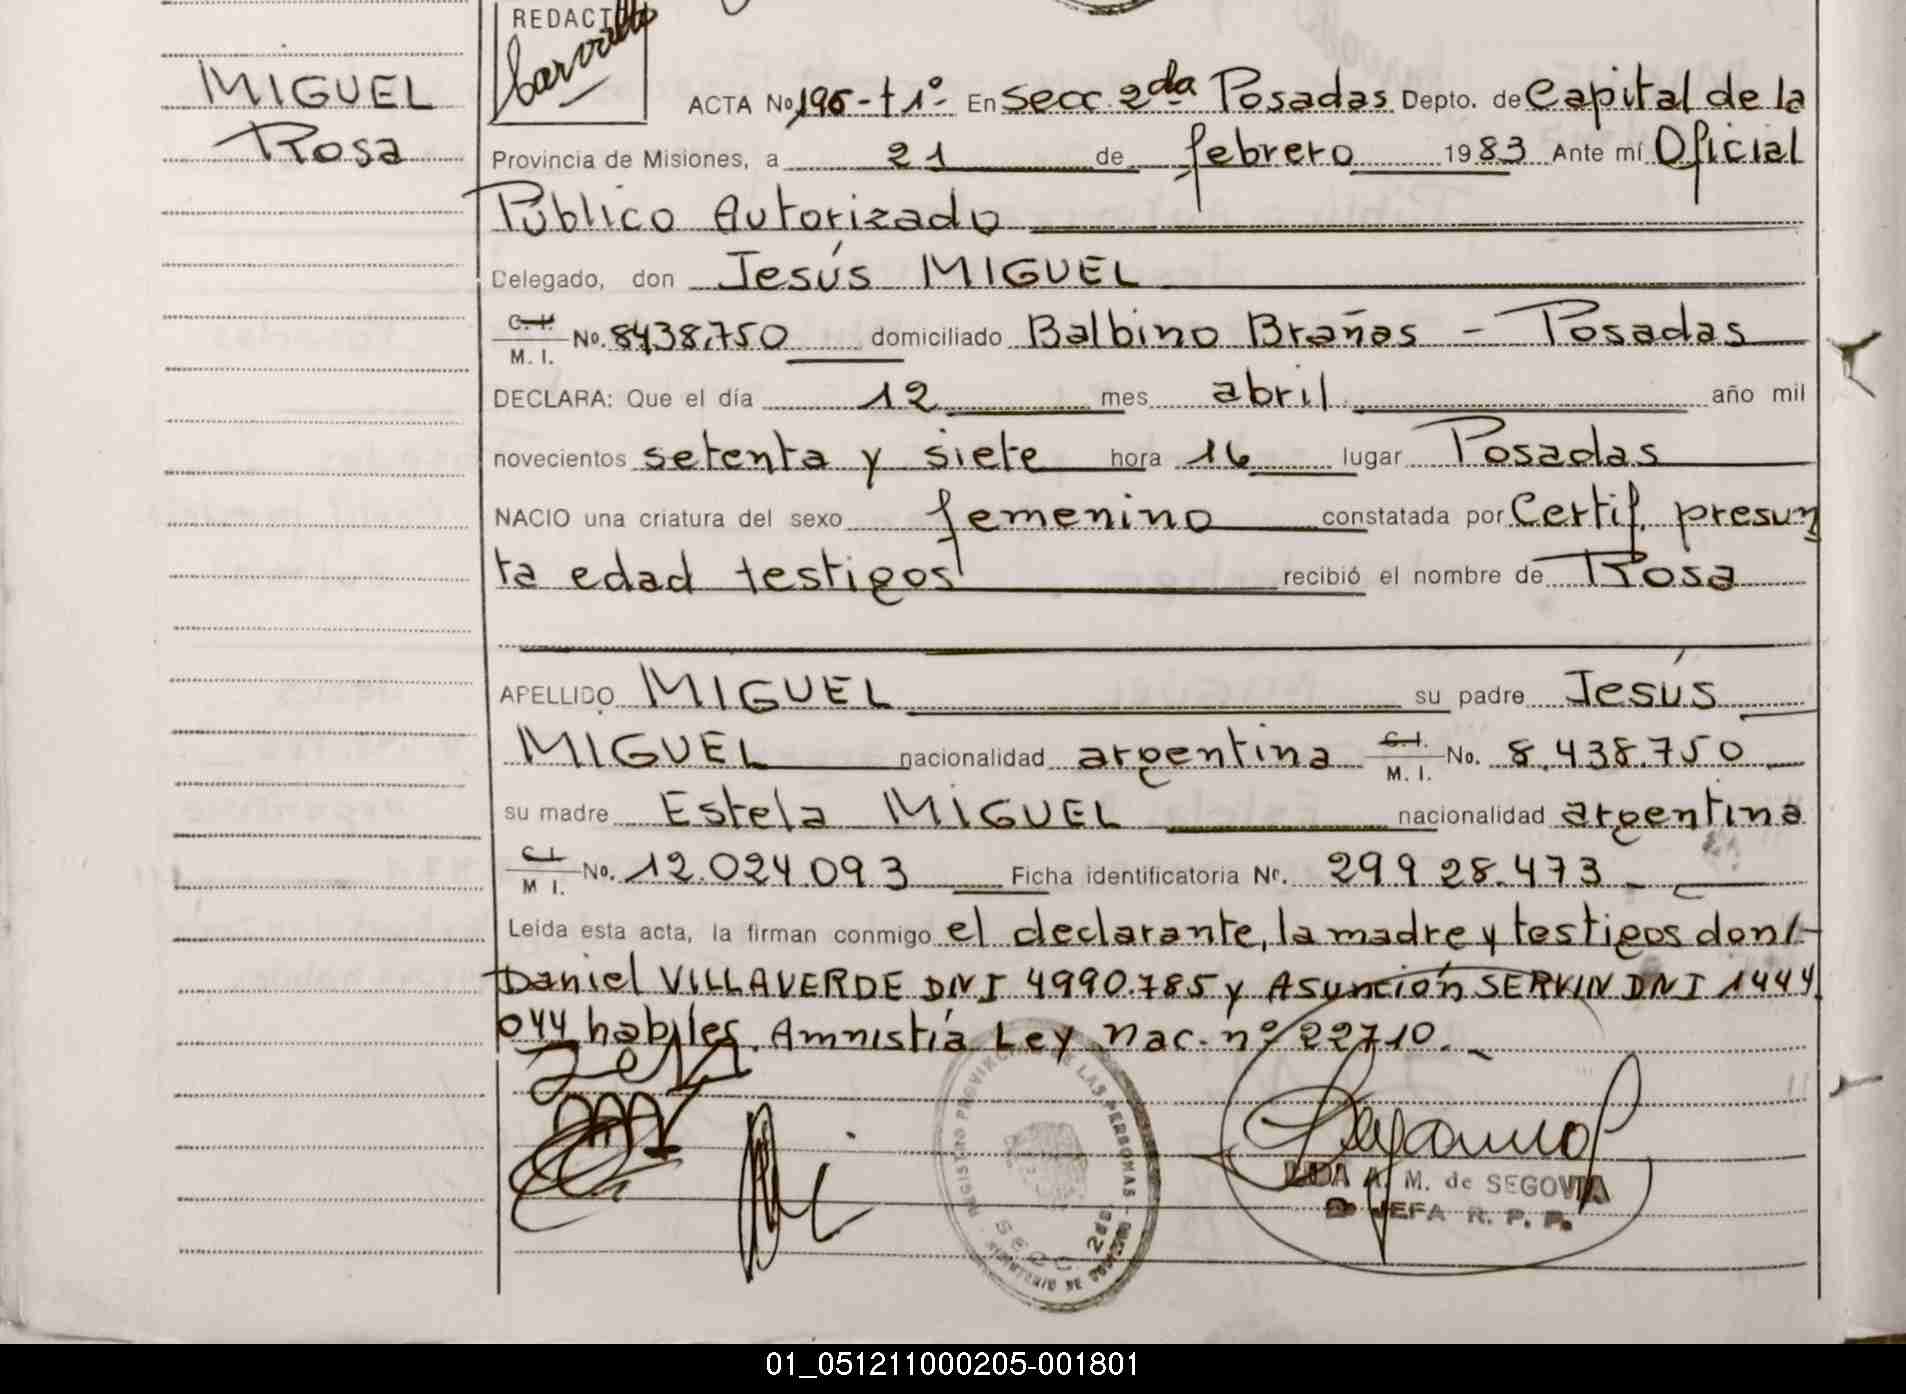 REDACTO
MIGUEL
Rosa
ACTA No 196-t1º- En Secc. 2da Posadas Depto. de Capital de la
Provincia de Misiones, a 21 de febrero 1983 Ante mí Oficial
Público Autorizado
Delegado, don Jesús MIGUEL
C.I. M. I. No. 8438.750 domiciliado Balbino Brañas - Posadas
DECLARA: Que el día 12 mes abril año mil
novecientos setenta y siete hora 16 lugar Posadas
NACIO una criatura del sexo femenino constatada por Certif. presun
ta edad testigos recibió el nombre de Rosa
APELLIDO MIGUEL su padre Jesús
MIGUEL nacionalidad argentina C.I. M. I. No. 8.438.750
su madre Estela MIGUEL nacionalidad argentina
C.I. M I. No. 12.024.093 Ficha identificatoria Nr. 29928.473_
Leida esta acta, la firman conmigo el declarante, la madre y testigos don
Daniel VILLAVERDE DNI 4990.785 y Asunción SERVIN DNI 1444
044 habiles. Amnistía Ley Nac. nº 22710._
REGISTRO PROVINCIAL DE LAS PERSONAS
SECC. 2da
LIDA A. M. de SEGOVIA
JEFA R. P. P.
01_051211000205-001801